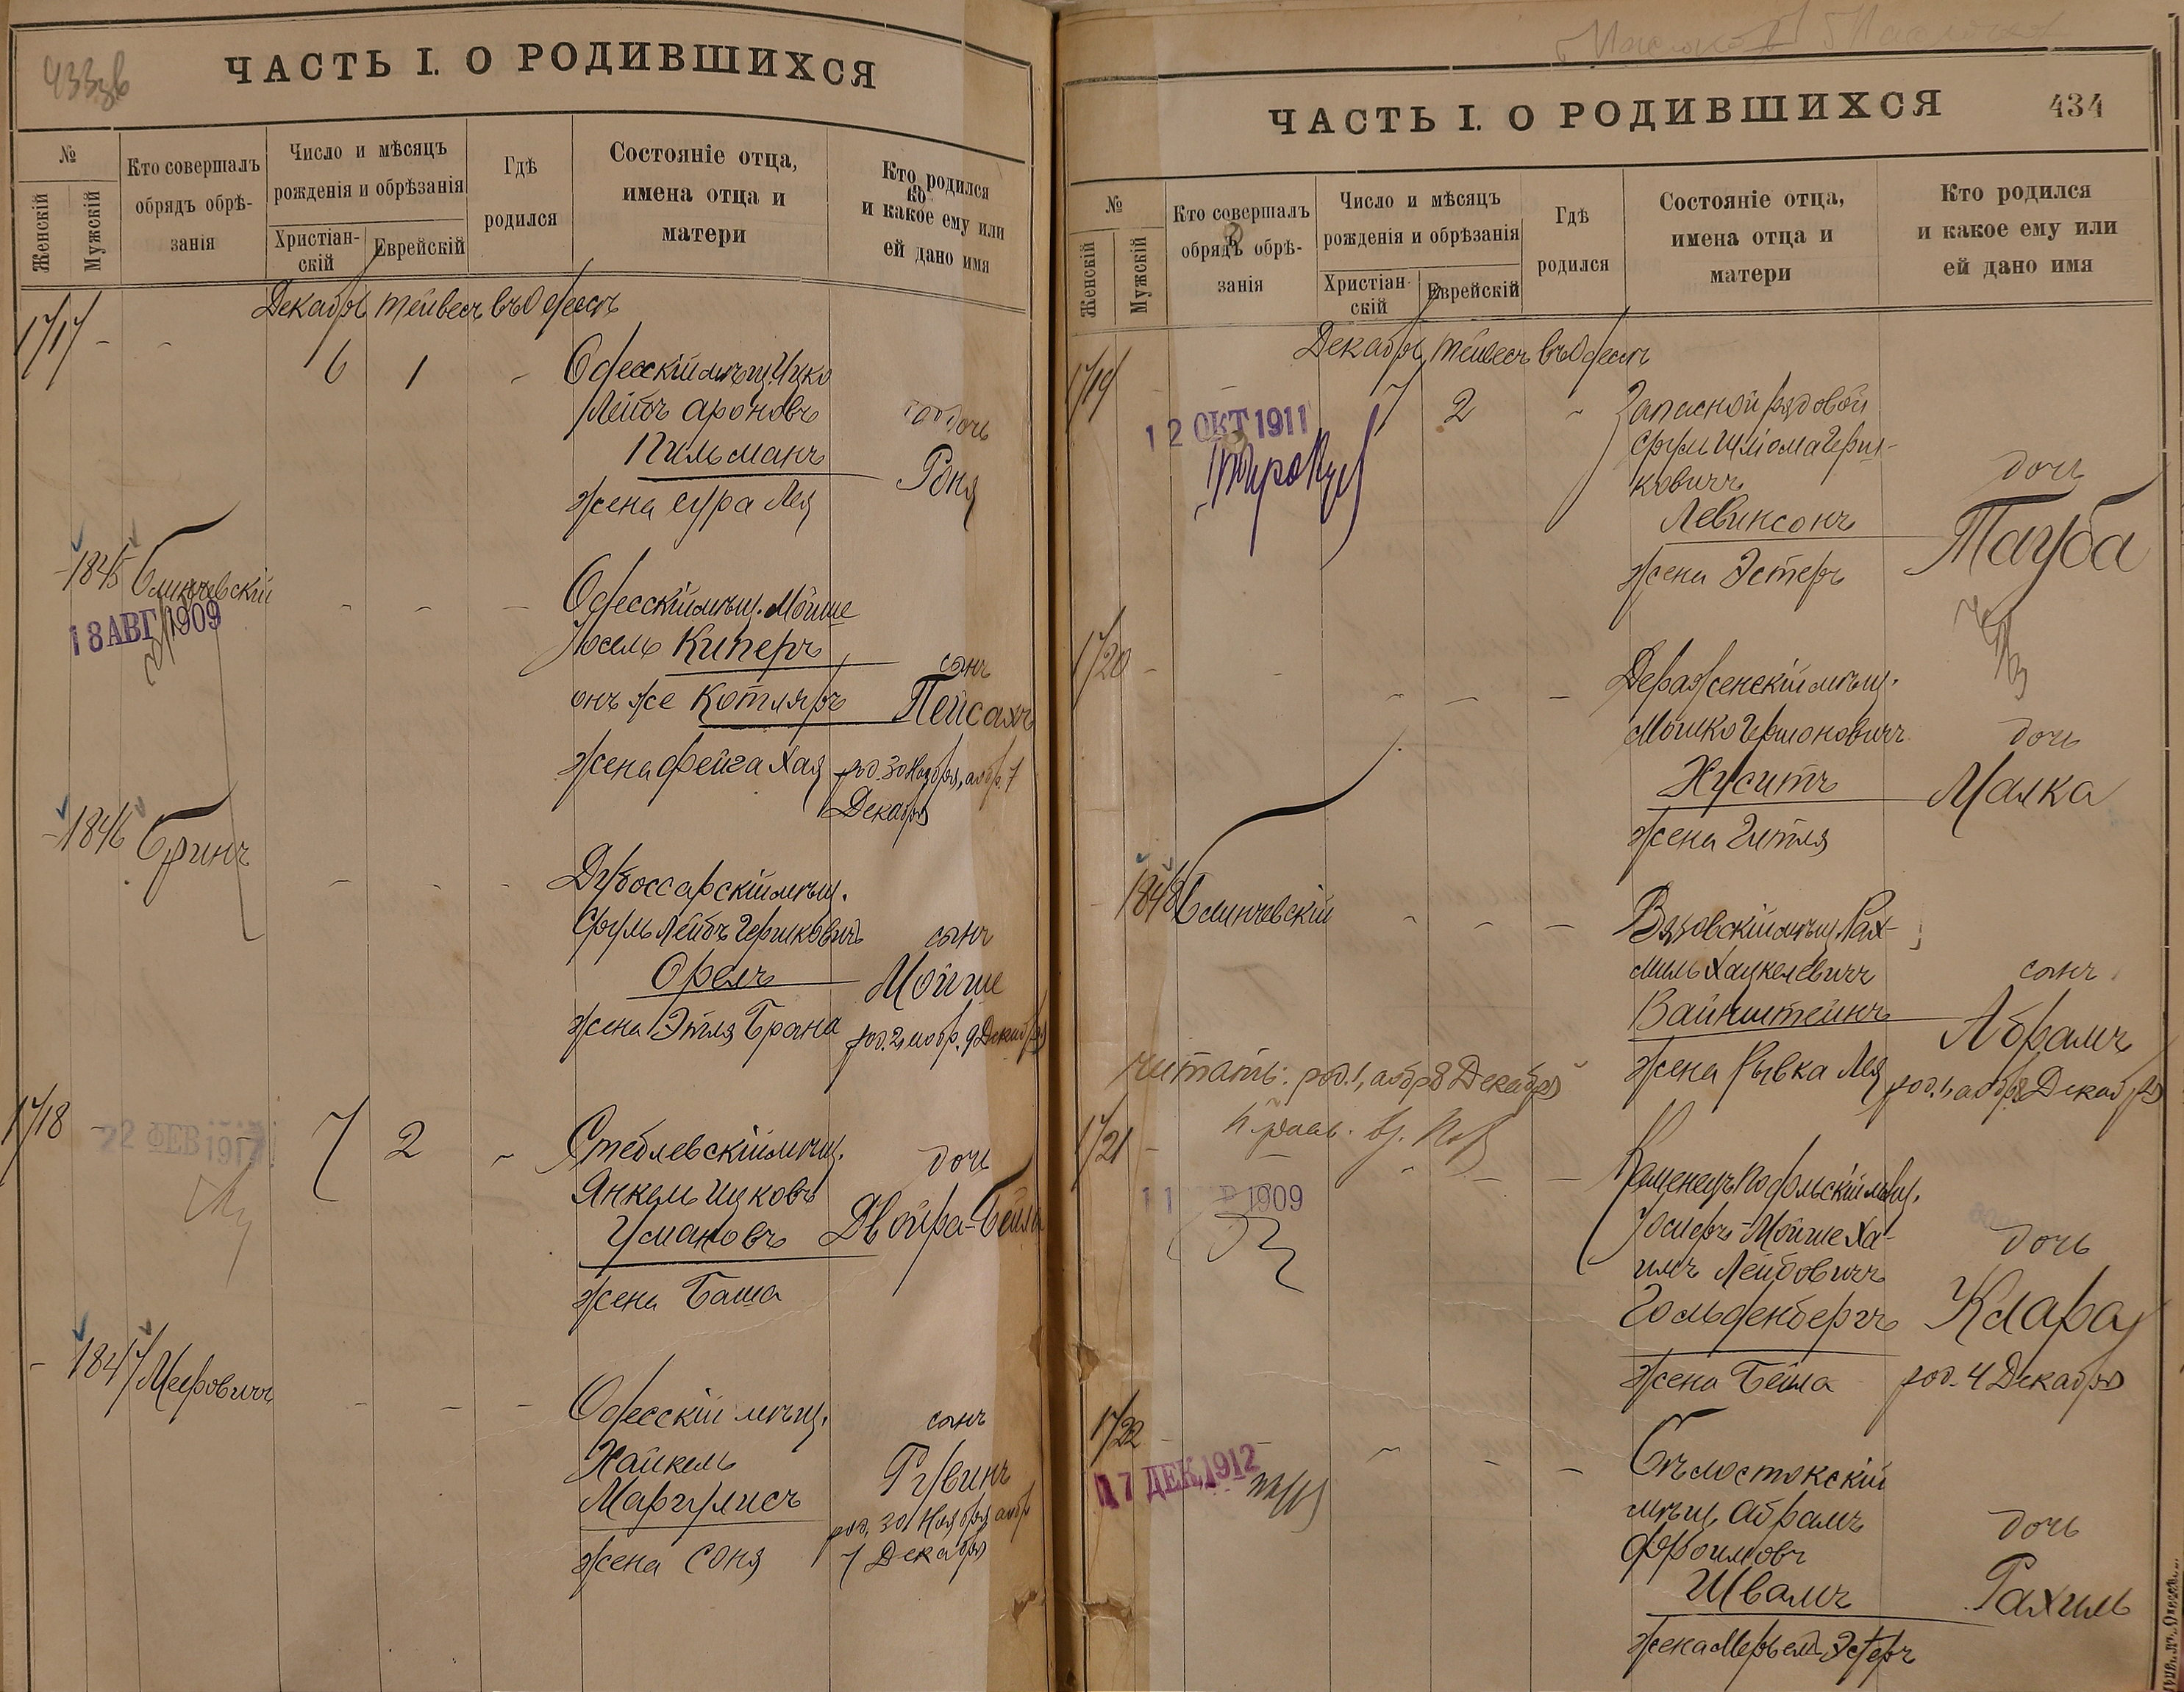 433об
ЧАСТЬ I. О РОДИВШИХСЯ
№
Женскій
Мужскій
Кто совершалъ
обрядъ обрѣ-
занія
Число и мѣсяцъ
рожденія и обрѣзанія
Христіан-
скій
Еврейскій
Гдѣ
родился
Состояніе отца,
имена отца и
матери
Кто родился
и какое ему или
ей дано имя
Декабрь Тейвесъ въ Одессѣ
1717 - - 6 1 - Одесскій мѣщ. Ицко
Лейбъ Ароновъ дочь
Пильманъ Роня
жена Сура Лея
- 1845 Блинчевскій - - - Одесскій мѣщ. Мойше
18 АВГ 1909
Іосель Киперъ сынъ
онъ же Котляръ Пейсахъ
жена Фейга Хая род. 30 Ноября, а обр. 7
Декабря
- 1846 Бринъ - - - Дубоссарскій мѣщ.
Сруль Лейбъ Гершковичъ сынъ
Орелъ Мойше
жена Этля Брана род. 2, и обр. 9 Декабря
1718 - - 7 2 - Стеблевскій мѣщ. дочь
22 ФЕВ 1917
Янкель Ицковъ Двойра-Бейла
Умановъ
жена Баша
- 1847 Мееровичъ - - - Одесскій мѣщ. сынъ
Хайкель Рувинъ
Маргулисъ род. 30 Ноября а обр
жена Соня 7 Декабря
ЧАСТЬ I. О РОДИВШИХСЯ
434
№
Женскій
Мужскій
Кто совершалъ
обрядъ обрѣ-
занія
Число и мѣсяцъ
рожденія и обрѣзанія
Христіан-
скій
Еврейскій
Гдѣ
родился
Состояніе отца,
имена отца и
матери
Кто родился
и какое ему или
ей дано имя
Декабрь Тейвесъ въ Одессѣ
1719 - - 7 2 - Запасной рядовой
12 ОКТ 1911
Сруль Шлома Герш-
ковичъ дочь
Левинсонъ Тауба
жена Эстеръ
1720 - - - - - Деражненскій мѣщ.
Мошко Гершоновичъ дочь
Хуситъ Малка
жена Гитля
- 1848 Блинчевскій - - - Вязовскій мѣщ. Рах-
миль Хацкелевичъ сынъ
Вайнштейнъ Абрамъ
жена Рывка Лея род. 1, а обр 8 Декабря
читать: род. 1, а обр 8 Декабря
1721 - - - - - Каменецъ Подольскій мѣщ.
11 1909
Іосифъ-Мойше Ха-
имъ Лейбовичъ дочь
Гольденбергъ Клара
жена Бейла род. 4 Декабря
1722 - - - - - Бѣлостокскій
17 ДЕК 1912
мѣщ. Абрамъ дочь
Фроимовъ
Швамъ Рахиль
жена Мерьемъ Эстеръ